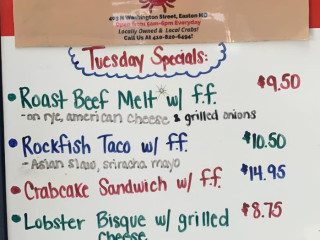 409 N Washington Street, Easton MD
Open from 11am-6pm Everyday
Locally Owned & Local Crabs!
Call Us At 410-820-6494!
Tuesday Specials:
• Roast Beef Melt w/ f.f. $9.50
- on rye, american cheese & grilled onions
• Rockfish Taco w/ f.f. $10.50
- Asian slaw, sriracha mayo
• Crabcake Sandwich w/ f.f. $14.95
• Lobster Bisque w/ grilled $8.75
cheese